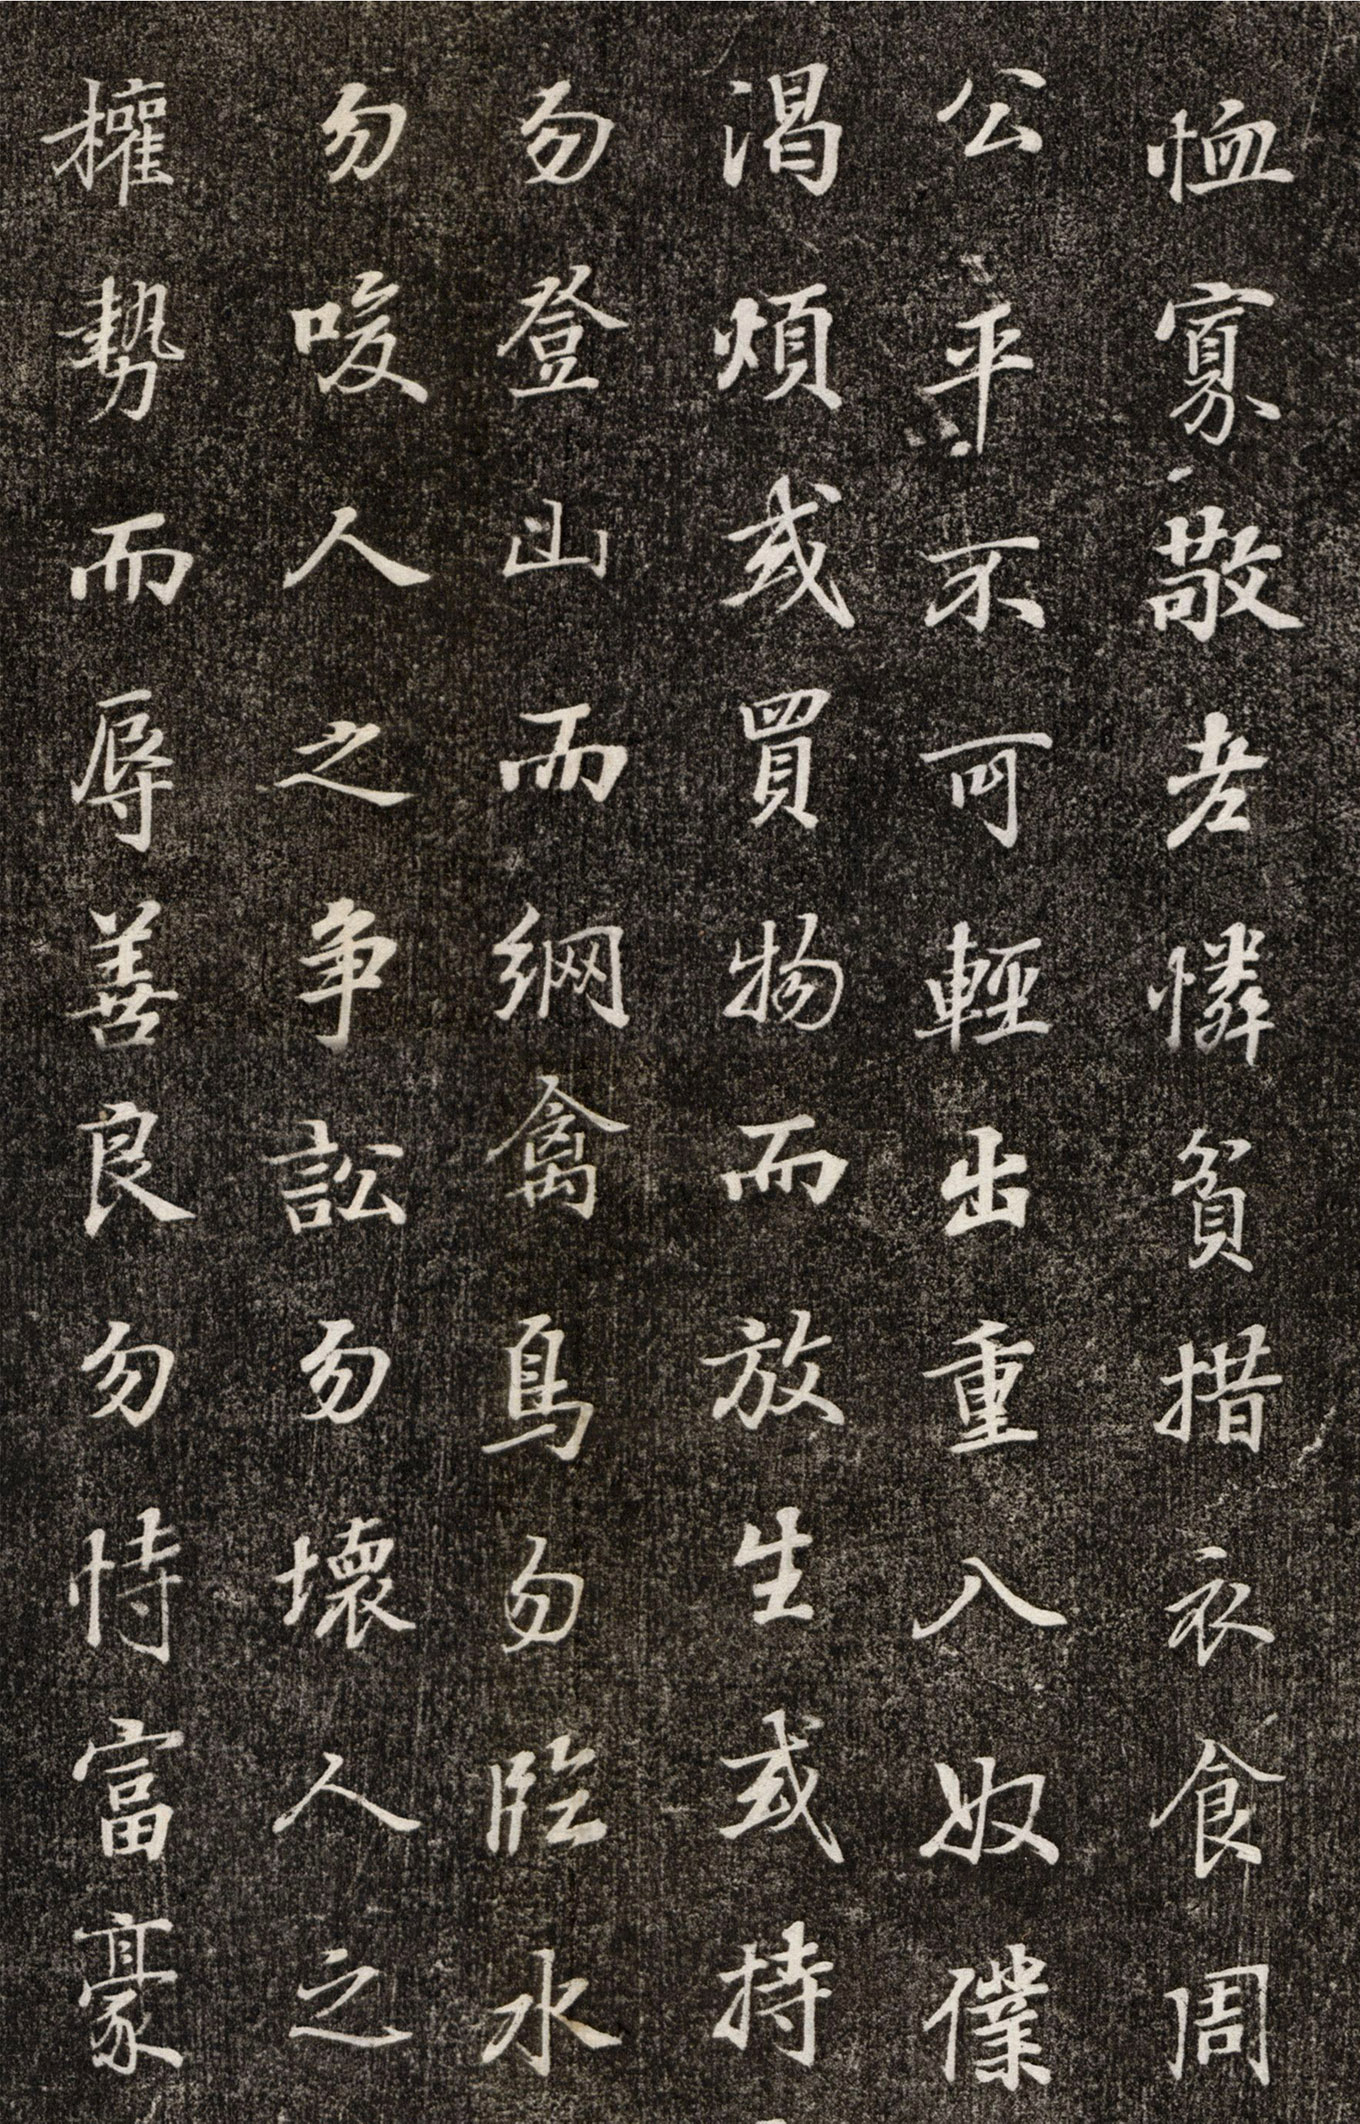 恤寡敬老憐貧措衣食周
公平不可輕出重入奴僕
渴煩或買物而放生或持
勿登山而網禽鳥勿臨水
勿唆人之争訟勿壞人之
權勢而辱善良勿恃富豪